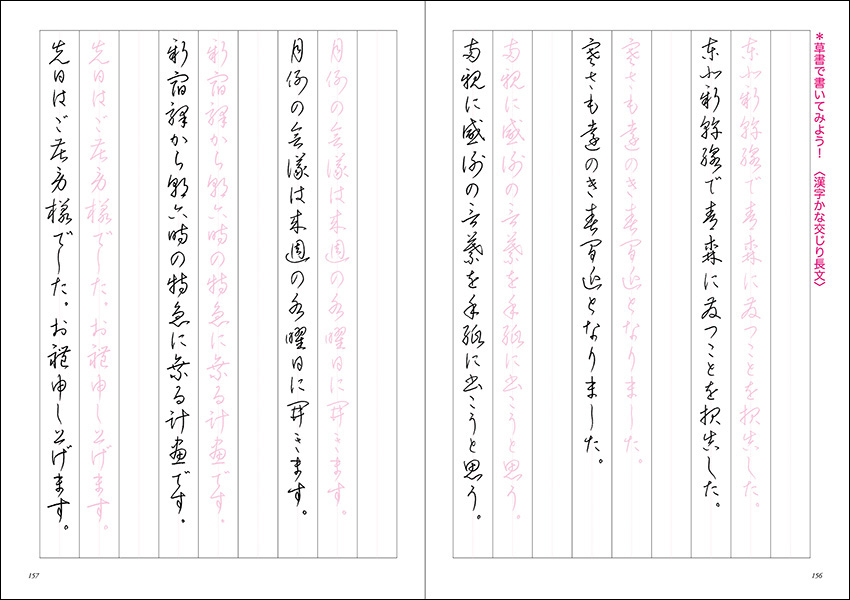 ＊草書で書いてみよう！　〈漢字かな交じり長文〉
東北新幹線で青森に発つことを報告した。
東北新幹線で青森に発つことを報告した。
寒さも遠のき春間近となりました。
寒さも遠のき春間近となりました。
両親に感謝の言葉を手紙に書こうと思う。
両親に感謝の言葉を手紙に書こうと思う。
156
月例の会議は来週の水曜日に開きます。
月例の会議は来週の水曜日に開きます。
新宿駅から朝六時の特急に乗る計画です。
新宿駅から朝六時の特急に乗る計画です。
先日はご苦労様でした。お礼申し上げます。
先日はご苦労様でした。お礼申し上げます。
157